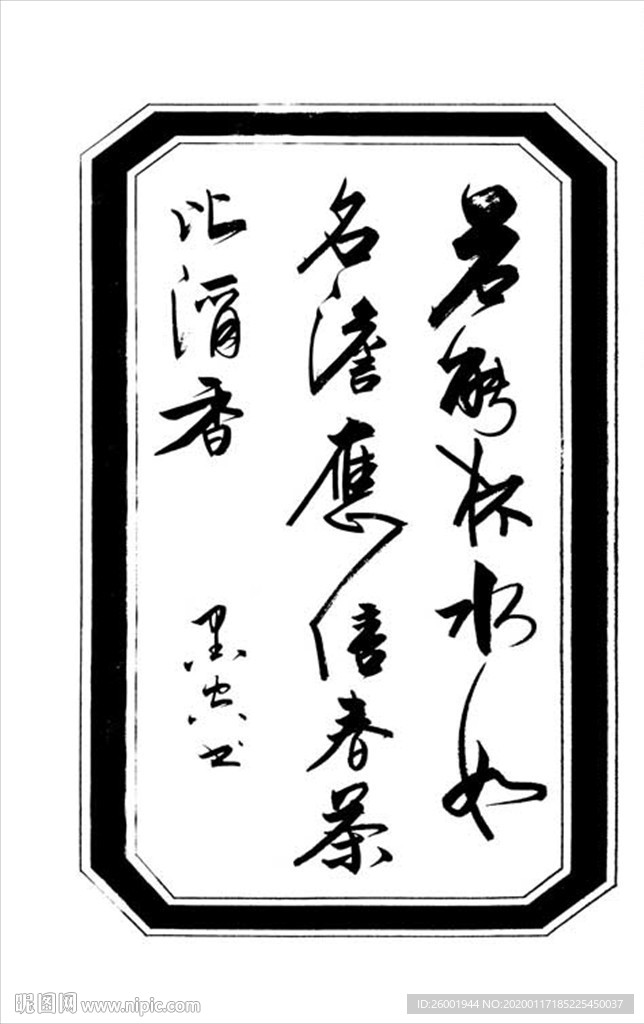 若能杯水如
名澹應信春茶
比酒香
墨忠书
昵图网 www.nipic.com
ID:26001944 NO:20200117185225450037